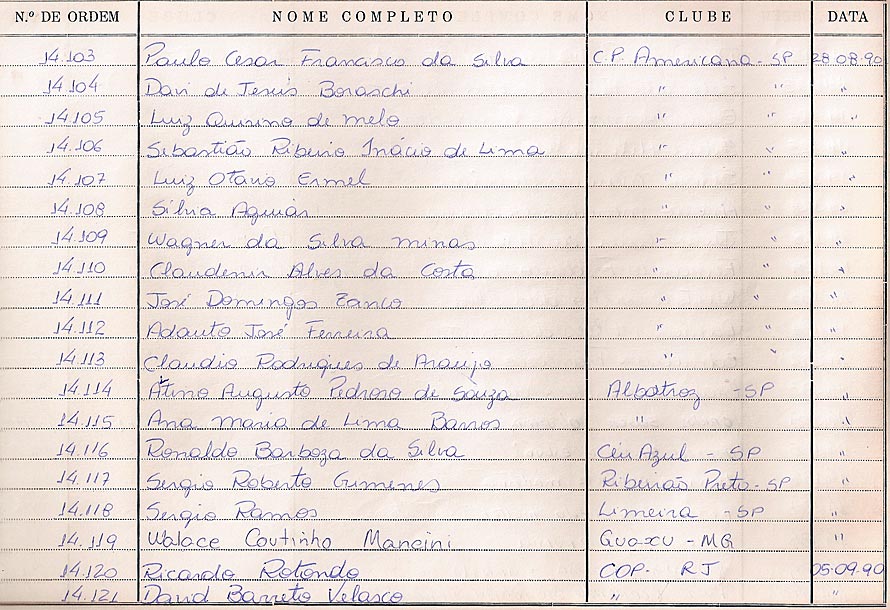 N.º DE ORDEM NOME COMPLETO CLUBE DATA
14.103 Paulo Cesar Francisco da Silva C.P. Americana - SP 28.08.90
14.104 Davi de Jesus Boraschi " " "
14.105 Luiz Quirino de Melo " " "
14.106 Sebastião Ribeiro Inácio de Lima " " "
14.107 Luiz Otavio Ermel " " "
14.108 Silvia Aguiar " " "
14.109 Wagner da Silva Minas " " "
14.110 Claudenir Alves da Costa " " "
14.111 José Domingos Zanco " " "
14.112 Adauto José Ferreira " " "
14.113 Claudio Rodrigues de Araujo " " "
14.114 Augusto Pedroso de Souza Albatroz - SP "
14.115 Ana Maria de Lima Barros " "
14.116 Ronaldo Barboza da Silva Céu Azul - SP "
14.117 Sergio Roberto Gimenes Ribeirão Preto - SP "
14.118 Sergio Ramos Limeira - SP "
14.119 Walace Coutinho Mancini Guaxu - MG "
14.120 Ricardo Rotondo COP. RJ 05.09.90
14.121 David Barreto Velasco " "